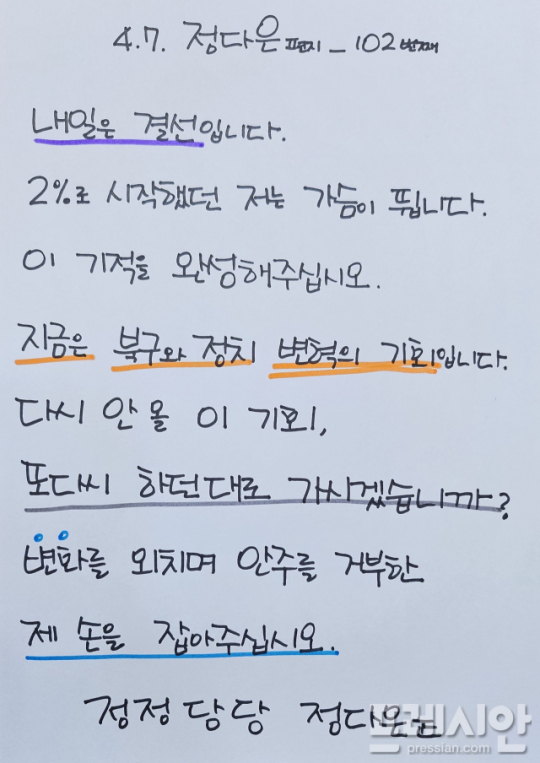 4.7. 정다은 편지 _ 102번째
내일은 결선입니다.
2%로 시작했던 저는 가슴이 뜁니다.
이 기적을 완성해주십시오.
지금은 북구와 정치 변혁의 기회입니다.
다시 안 올 이 기회,
또다시 하던대로 가시겠습니까?
변화를 외치며 안주를 거부한
제 손을 잡아주십시오.
정정당당 정다은
프레시안
pressian.com